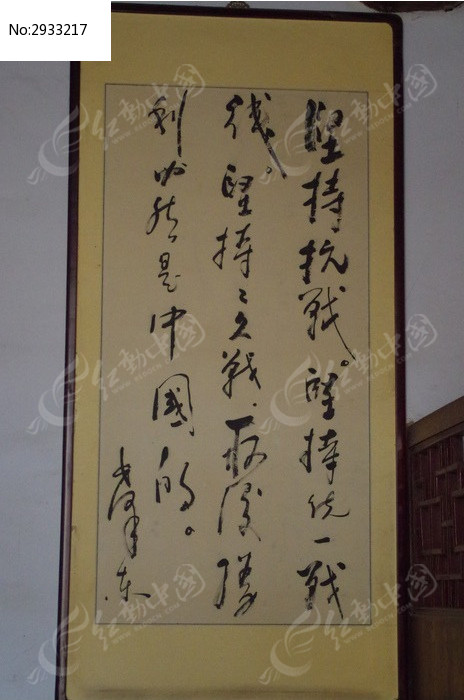 No:2933217
堅持抗戰。堅持统一戰
綫。堅持〻久戰、最後勝
利必然是中國的。
毛澤东
红動中国